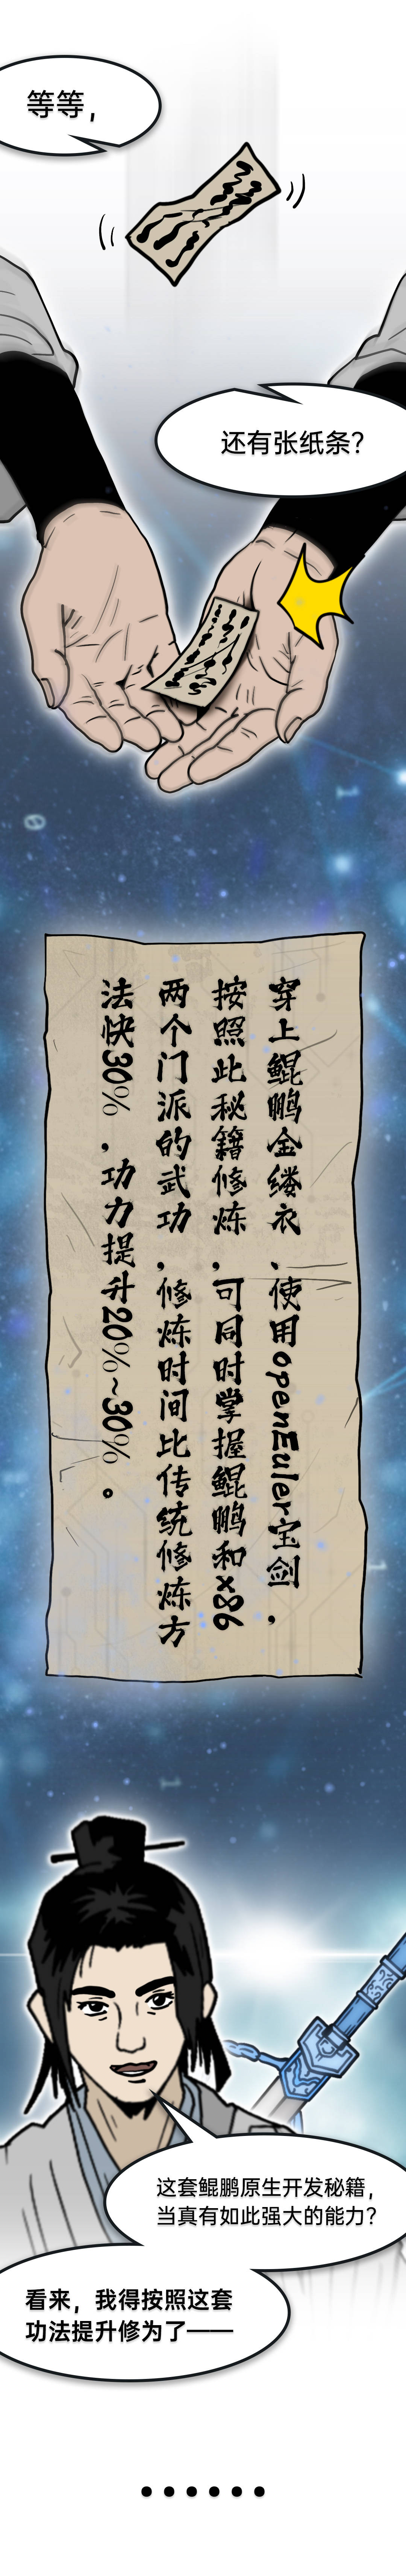 等等，
还有张纸条？
穿上鲲鹏金缕衣、使用openEuler宝剑，
按照此秘籍修炼，可同时掌握鲲鹏和x86
两个门派的武功，修炼时间比传统修炼方
法快30%，功力提升20%~30%。
这套鲲鹏原生开发秘籍，
当真有如此强大的能力？
看来，我得按照这套
功法提升修为了——
······